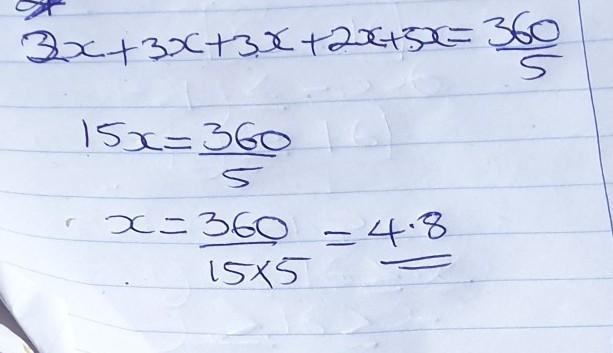 2x+3x+3x+2x+5x=360/5
15x=360/5
x=360/15×5=4.8